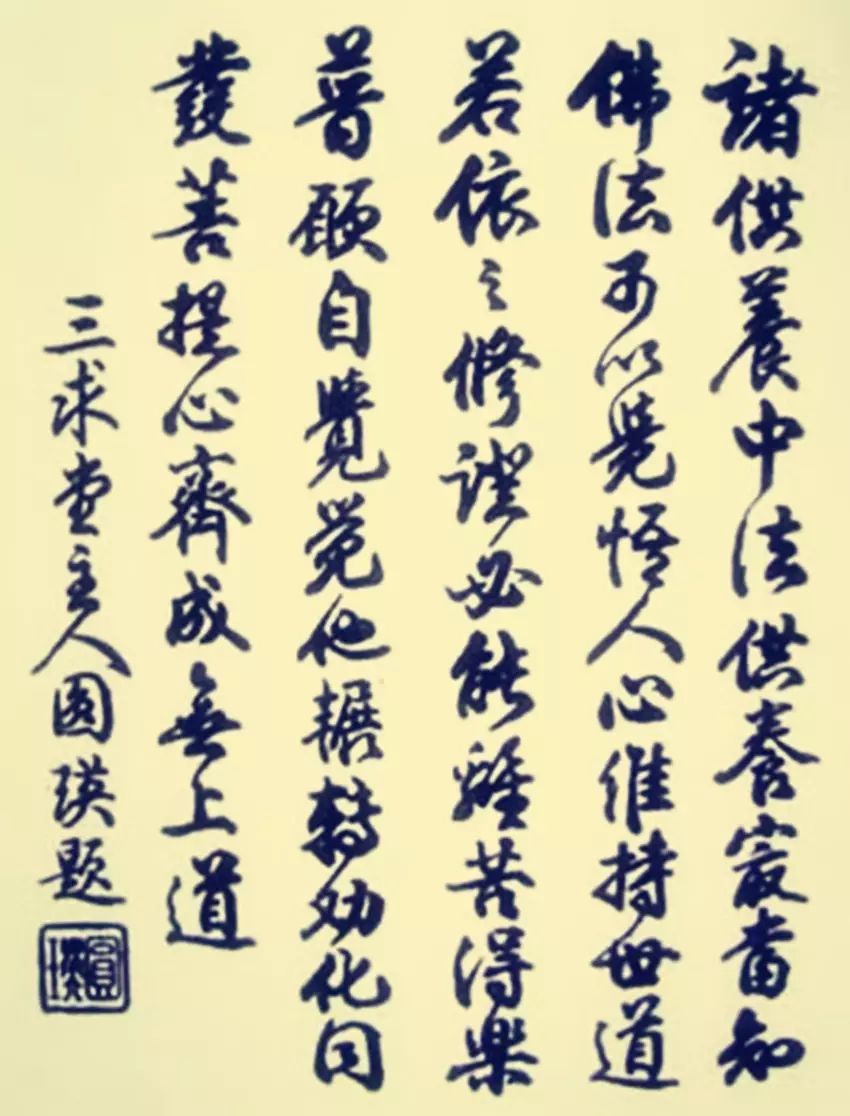 諸供養中法供養最當知
佛法可以覺悟人心維持世道
若依之修證必能離苦得樂
普願自覺覺他輾轉勸化同
發菩提心齊成無上道
三求堂主人圓瑛題
圓瑛